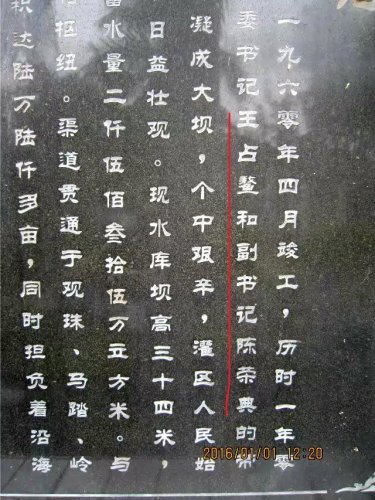 一九六零年四月竣工，历时一年零
委书记王占鳌和副书记陈荣典的带
凝成大坝，个中艰辛，灌区人民始
日益壮观。现水库坝高三十四米，
蓄水量二仟伍佰叁拾伍万立方米。与
枢纽。渠道贯通于观珠、马踏、岭
积达陆万陆仟多亩，同时担负着沿海
2016/01/01 12:20